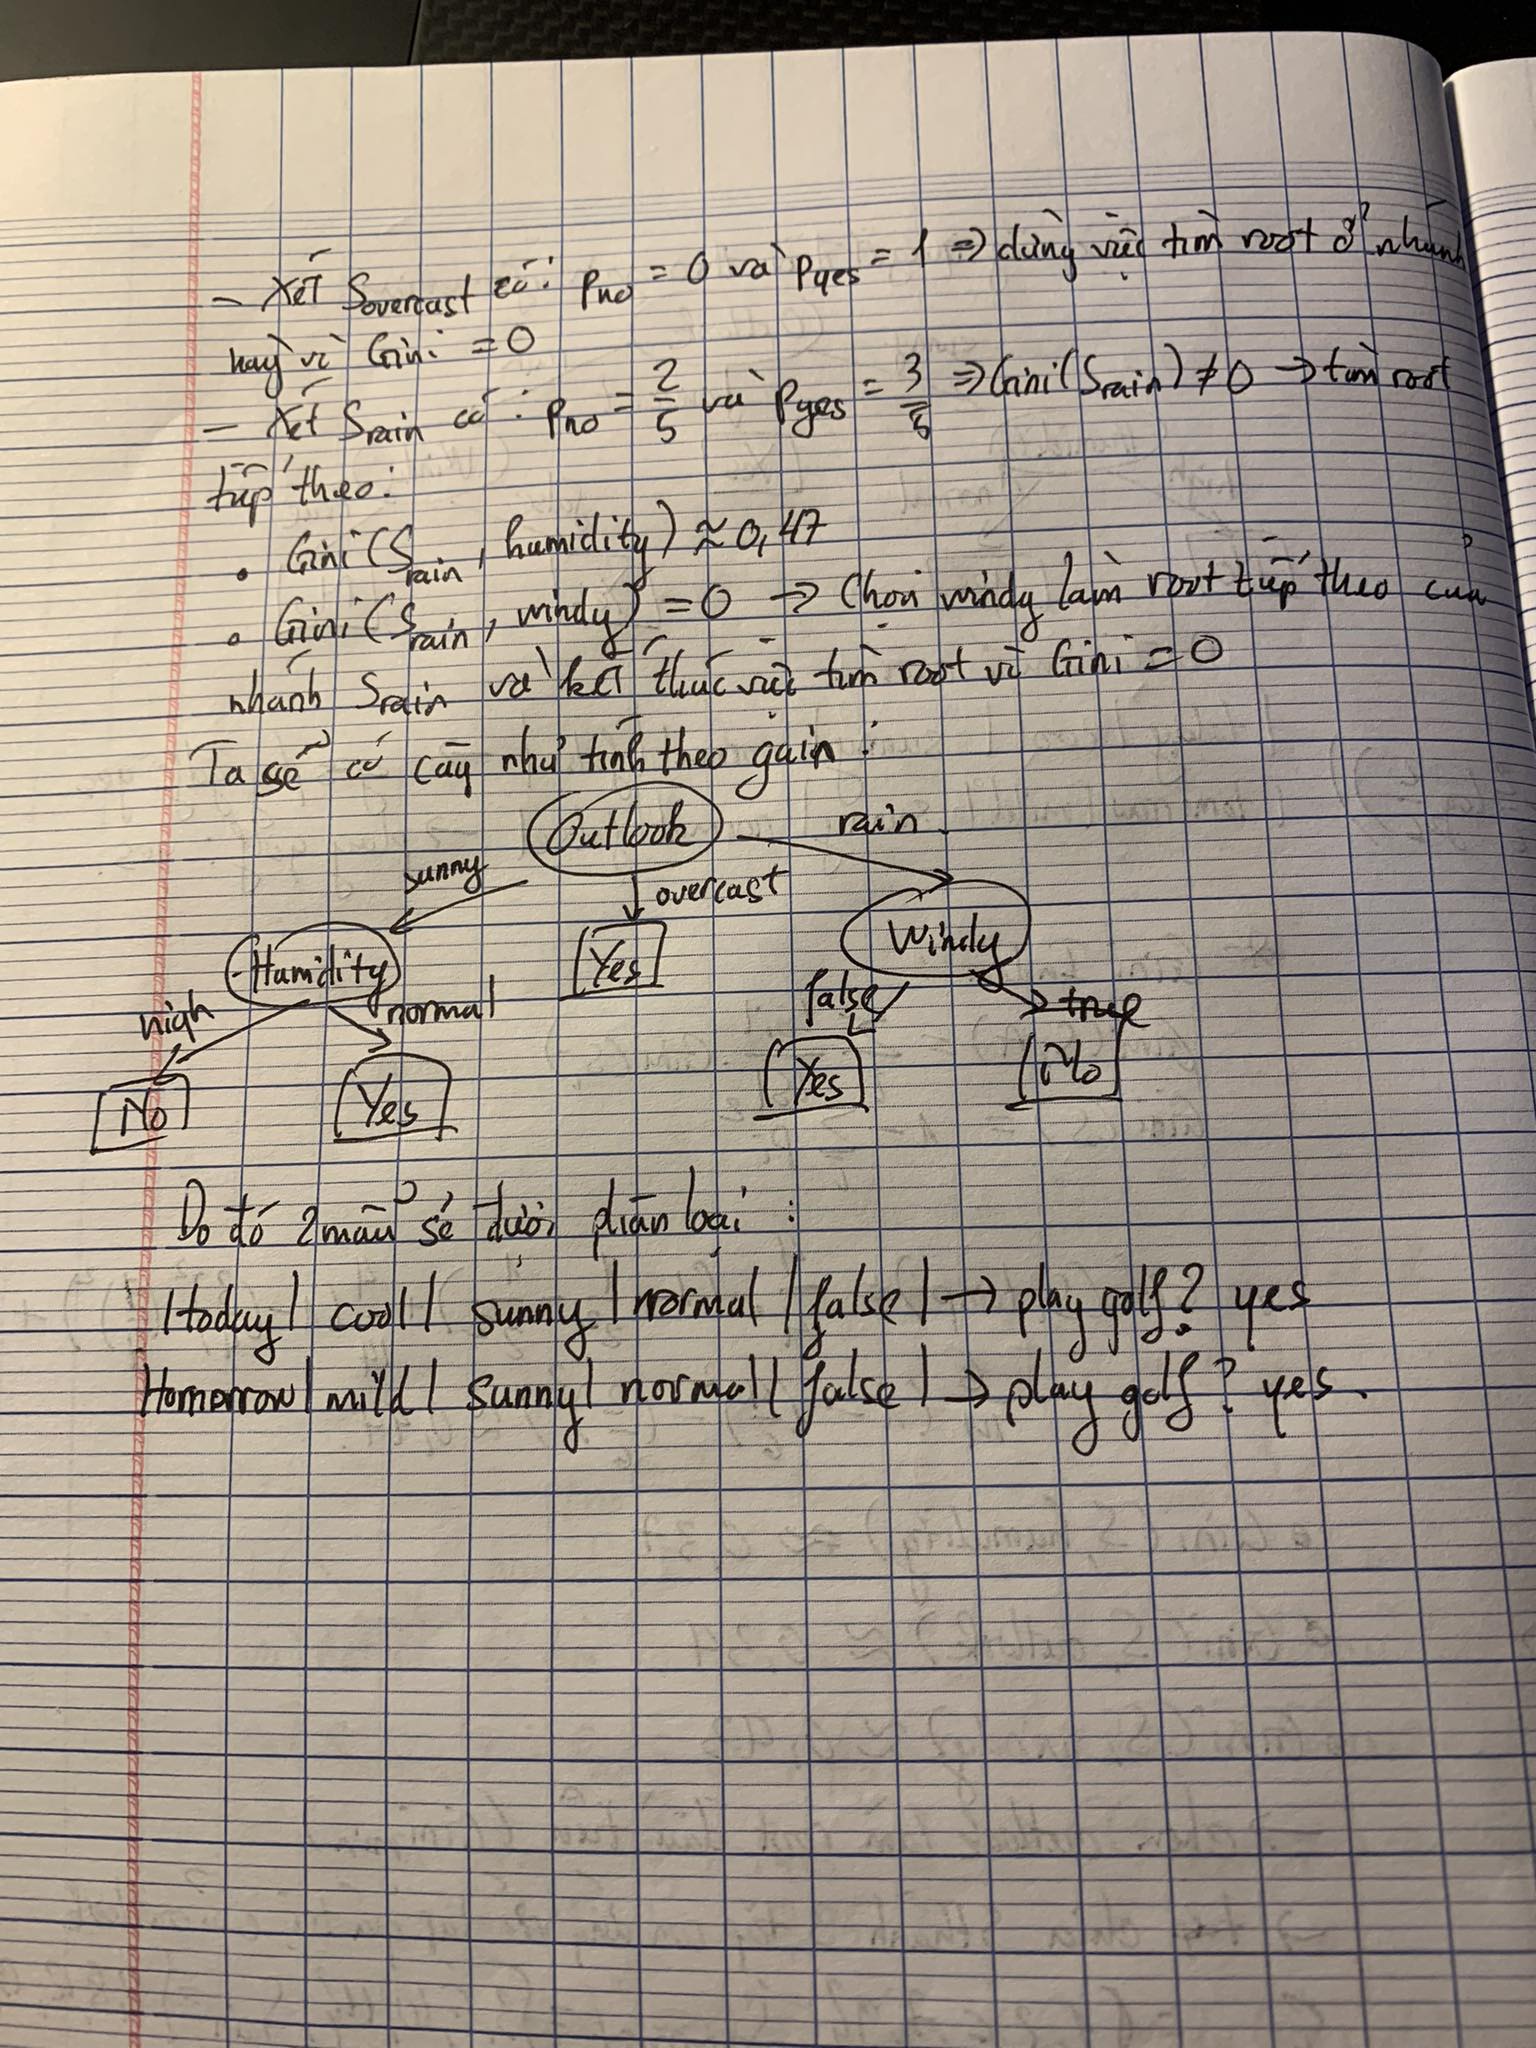 - Xét Sovercast có: Pno = 0 và Pyes = 1 => dừng việc tìm root ở nhánh
này vì Gini = 0
- Xét Srain có: Pno = 2/5 và Pyes = 3/5 => Gini(Srain) ≠ 0 → tìm root
tiếp theo:
• Gini(Srain, humidity) ≈ 0,47
• Gini(Srain, windy) = 0 → Chọn windy làm root tiếp theo của
nhánh Srain và kết thúc việc tìm root vì Gini = 0
Ta sẽ có cây như tính theo gain:
Outlook
sunny overcast rain
Humidity Yes Windy
high normal false true
No Yes Yes No
Do đó 2 mẫu sẽ được phân loại:
| today | cool | sunny | normal | false | → play golf? yes
tomorrow | mild | sunny | normal | false | → play golf? yes.